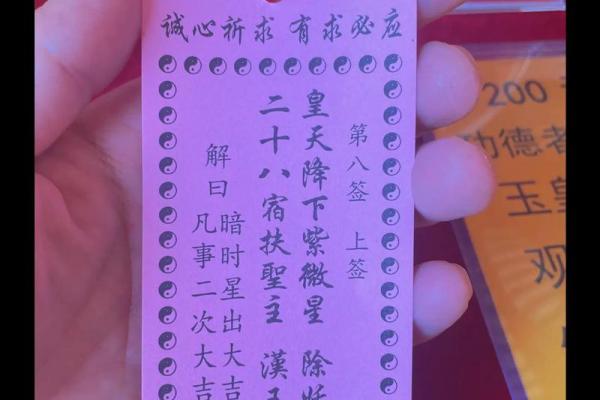 誠心祈求 有求必应
第八签 上签
皇天降下紫微星 除
二十八宿扶聖主 漢
解曰
暗时星出大吉
凡事二次大吉
200
功德者
玉皇
观